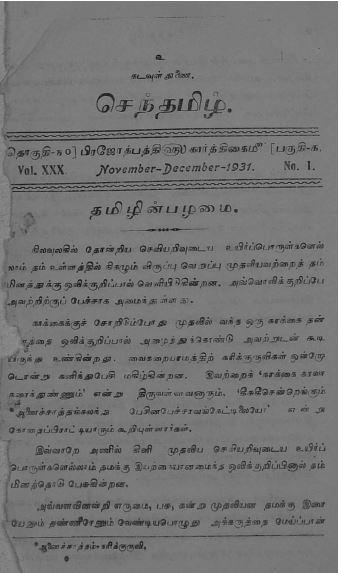 உ
கடவுள் துணை.
செந்தமிழ்.
தொகுதி-௩௦] பிரஜோற்பத்தி௵ கார்த்திகைமீ [பகுதி-க.
Vol. XXX. November–December-1931. No. 1.
தமிழின்பழமை.
நிலவுலகில் தோன்றிய செவியறிவுடைய உயிர்ப்பொருள்களெல்
லாம் தம் உள்ளத்தில் நிகழும் விருப்பு வெறுப்பு முதலியவற்றைத் தம்
மினத்துக்கு ஒலிக்குறிப்பால் வெளியிடுகின்றன. அவ்வொலிக்குறிப்பே
அவற்றிற்குப் பேச்சாக அமைந்துள்ளது.
காக்கைக்குச் சோறிடும்போது முதலில் வந்த ஒரு காக்கை தன்
னத்தை ஒலிக்குறிப்பால் அழைத்துக்கொண்டு அவற்றுடன் கூடி
யிருந்து உண்கின்றது. வைகறையாமத்திற் கரிக்குருவிகள் ஒன்றோ
டொன்று கனிந்துபேசி மகிழ்கின்றன. இவற்றைக் 'காக்கை கரவா
கரைந்துண்ணும்' என்று திருவள்ளுவனாரும், 'கீசுகீசென்றெங்கும்
*ஆனைச்சாத்தன்கலந்து பேசினபேச்சரவங்கேட்டிலையோ' என்று
கோதைப்பிராட்டியாரும் கூறியுள்ளார்கள்.
இவ்வாறே அணில் கிளி முதலிய செவியறிவுடைய உயிர்ப்
பொருள்களெல்லாம் தமக்கு இயற்கையானமைந்த ஒலிக்குறிப்பினால் தம்
மினத்தொடு பேசுகின்றன.
அவ்வளவினன்றி எருமை, பசு, கன்று முதலியன தமக்கு இரை
யேனும் தண்ணீரேனும் வேண்டியபொழுது அக்கருத்தை மேய்ப்பான்
*ஆனைச்சாத்தம்-கரிக்குருவி,